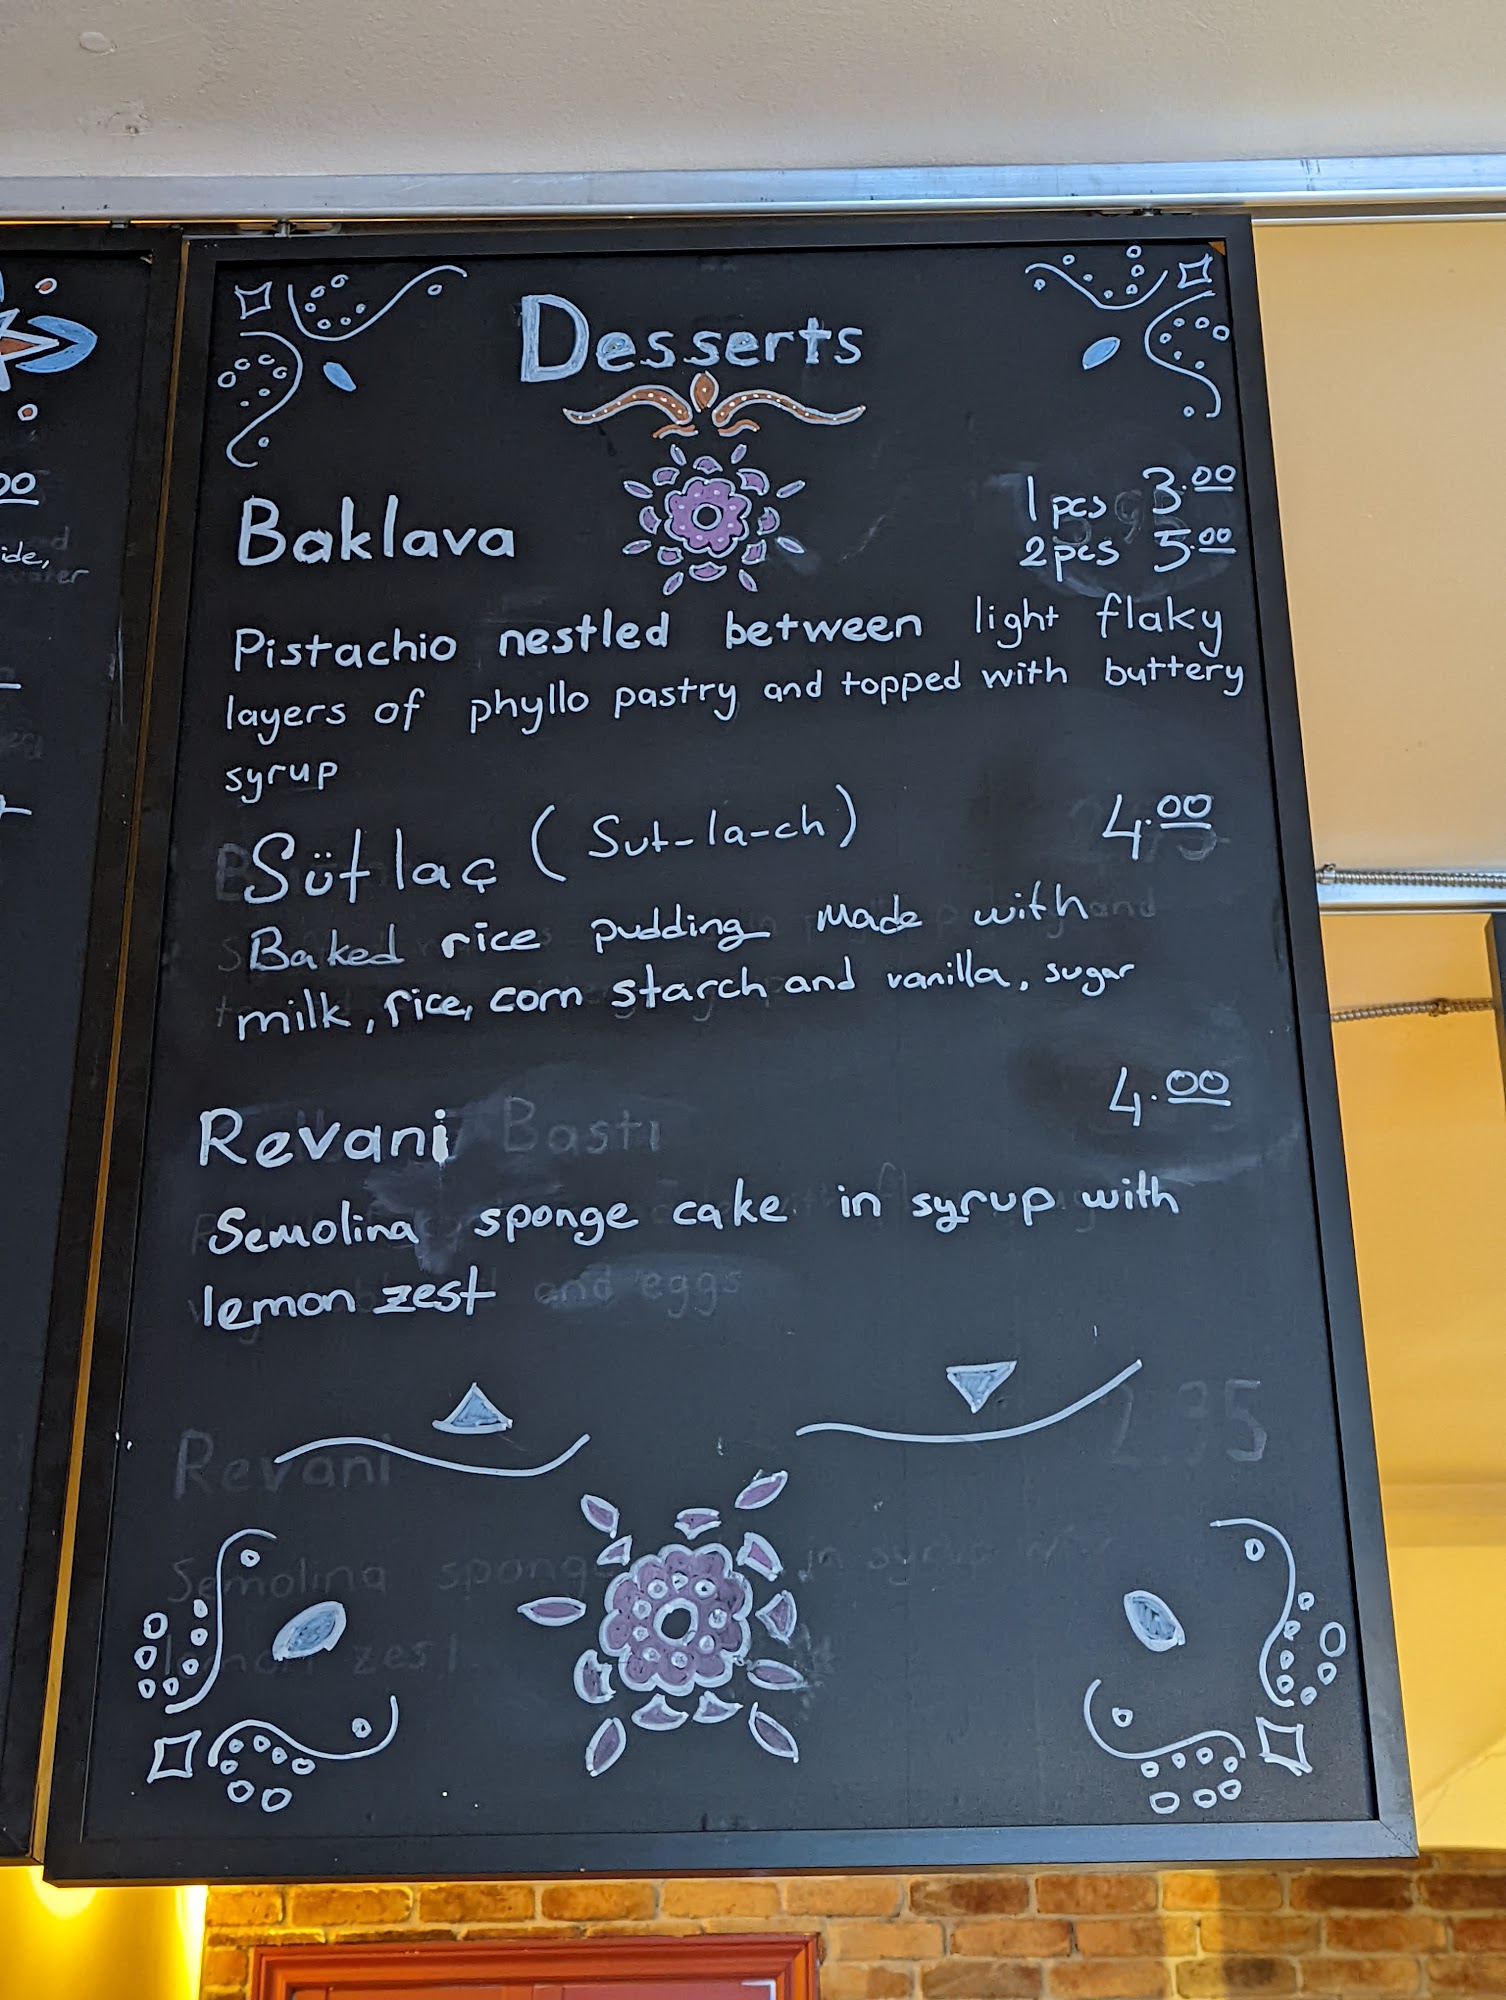 Desserts
Baklava
1 pcs 3.00
2 pcs 5.00
Pistachio nestled between light flaky
layers of phyllo pastry and topped with buttery
syrup
Sütlaç (Sut-la-ch) 4.00
Baked rice pudding made with
milk, rice, corn starch and vanilla, sugar
Revani 4.00
Semolina sponge cake in syrup with
lemon zest
Basti
and eggs
Revani
Semolina sponge in syrup
lemon zest
00
ide,